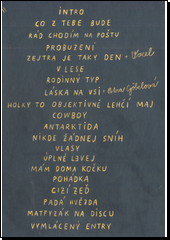 INTRO
CO Z TEBE BUDE
RÁD CHODÍM NA POŠTU
PROBUZENÍ
ZEJTRA JE TAKY DEN + Vocel
V LESE
RODINNÝ TYP
LÁSKA NA VSI +
HOLKY TO OBJEKTIVNĚ LEHČÍ MAJ
COWBOY
ANTARKTIDA
NIKDE ŽÁDNEJ SNÍH
VLASY
ÚPLNĚ LEVEJ
MÁM DOMA KOČKU
POHÁDKA
CIZÍ ZEĎ
PADÁ HVĚZDA
MATFYZÁK NA DISCU
VYMLÁCENÝ ENTRY